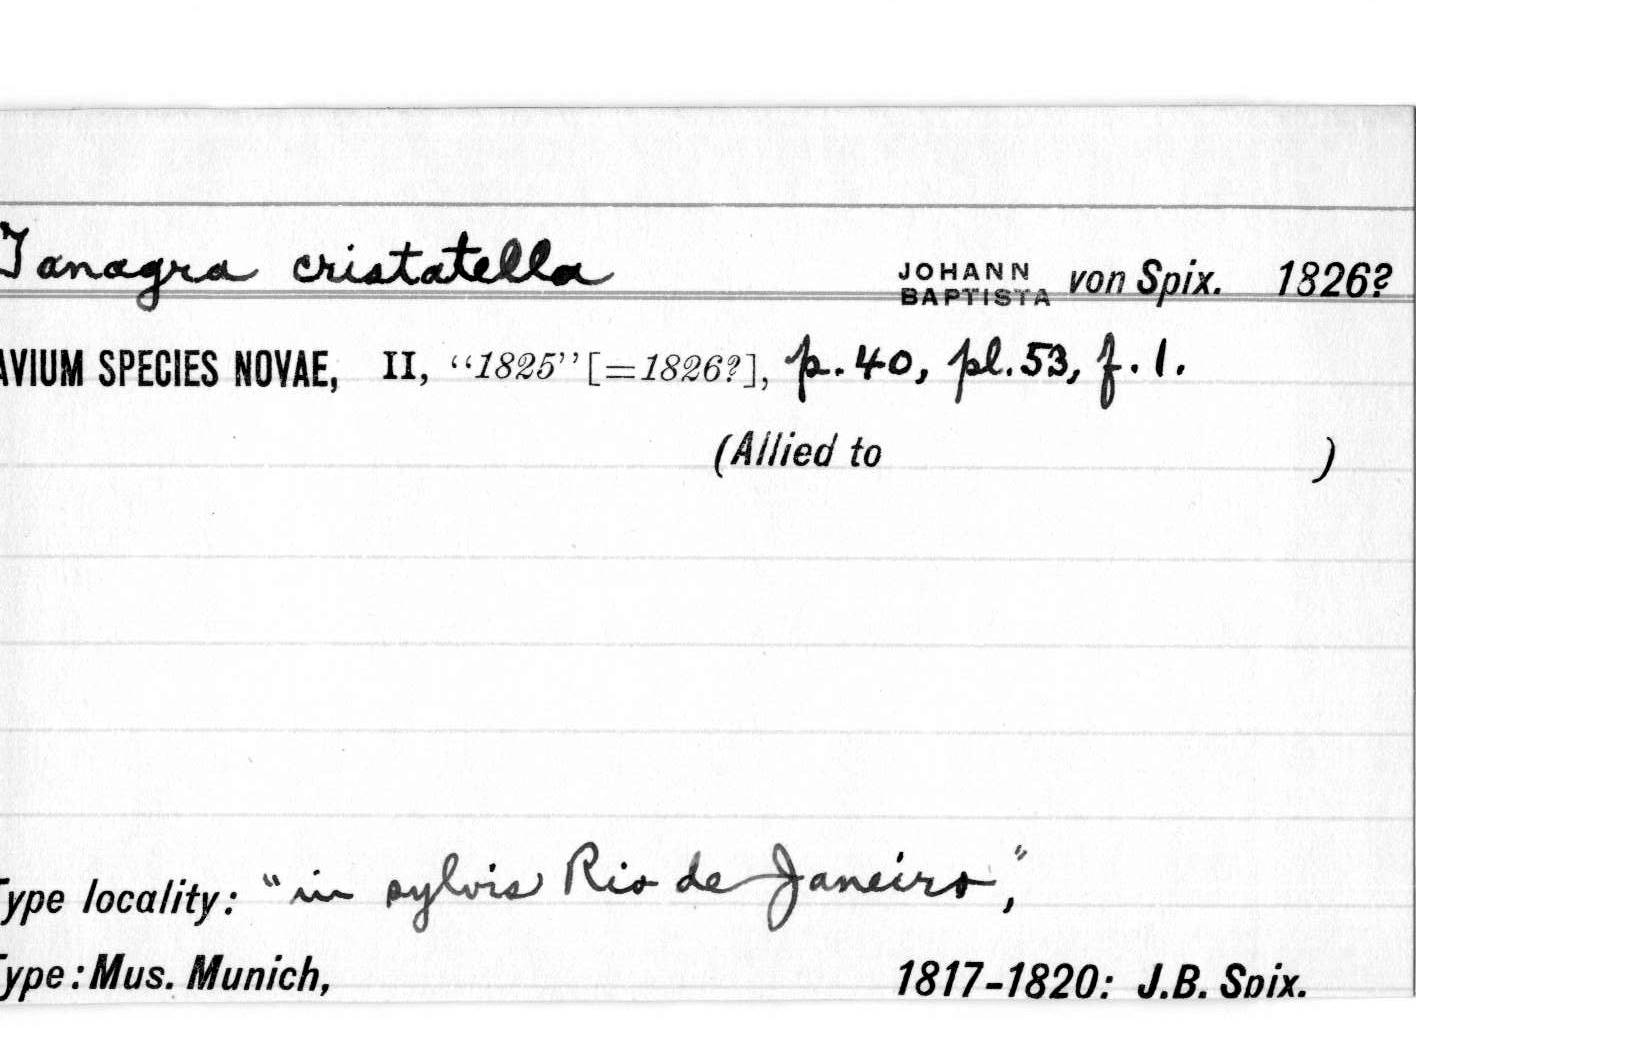 Tanagra cristatella JOHANN BAPTISTA von Spix. 1826?
AVIUM SPECIES NOVAE, II, “1825” [=1826?], p. 40, pl. 53, f. 1.
(Allied to )
Type locality: “in sylvis Rio de Janeiro”,
Type: Mus. Munich, 1817-1820: J.B. Spix.